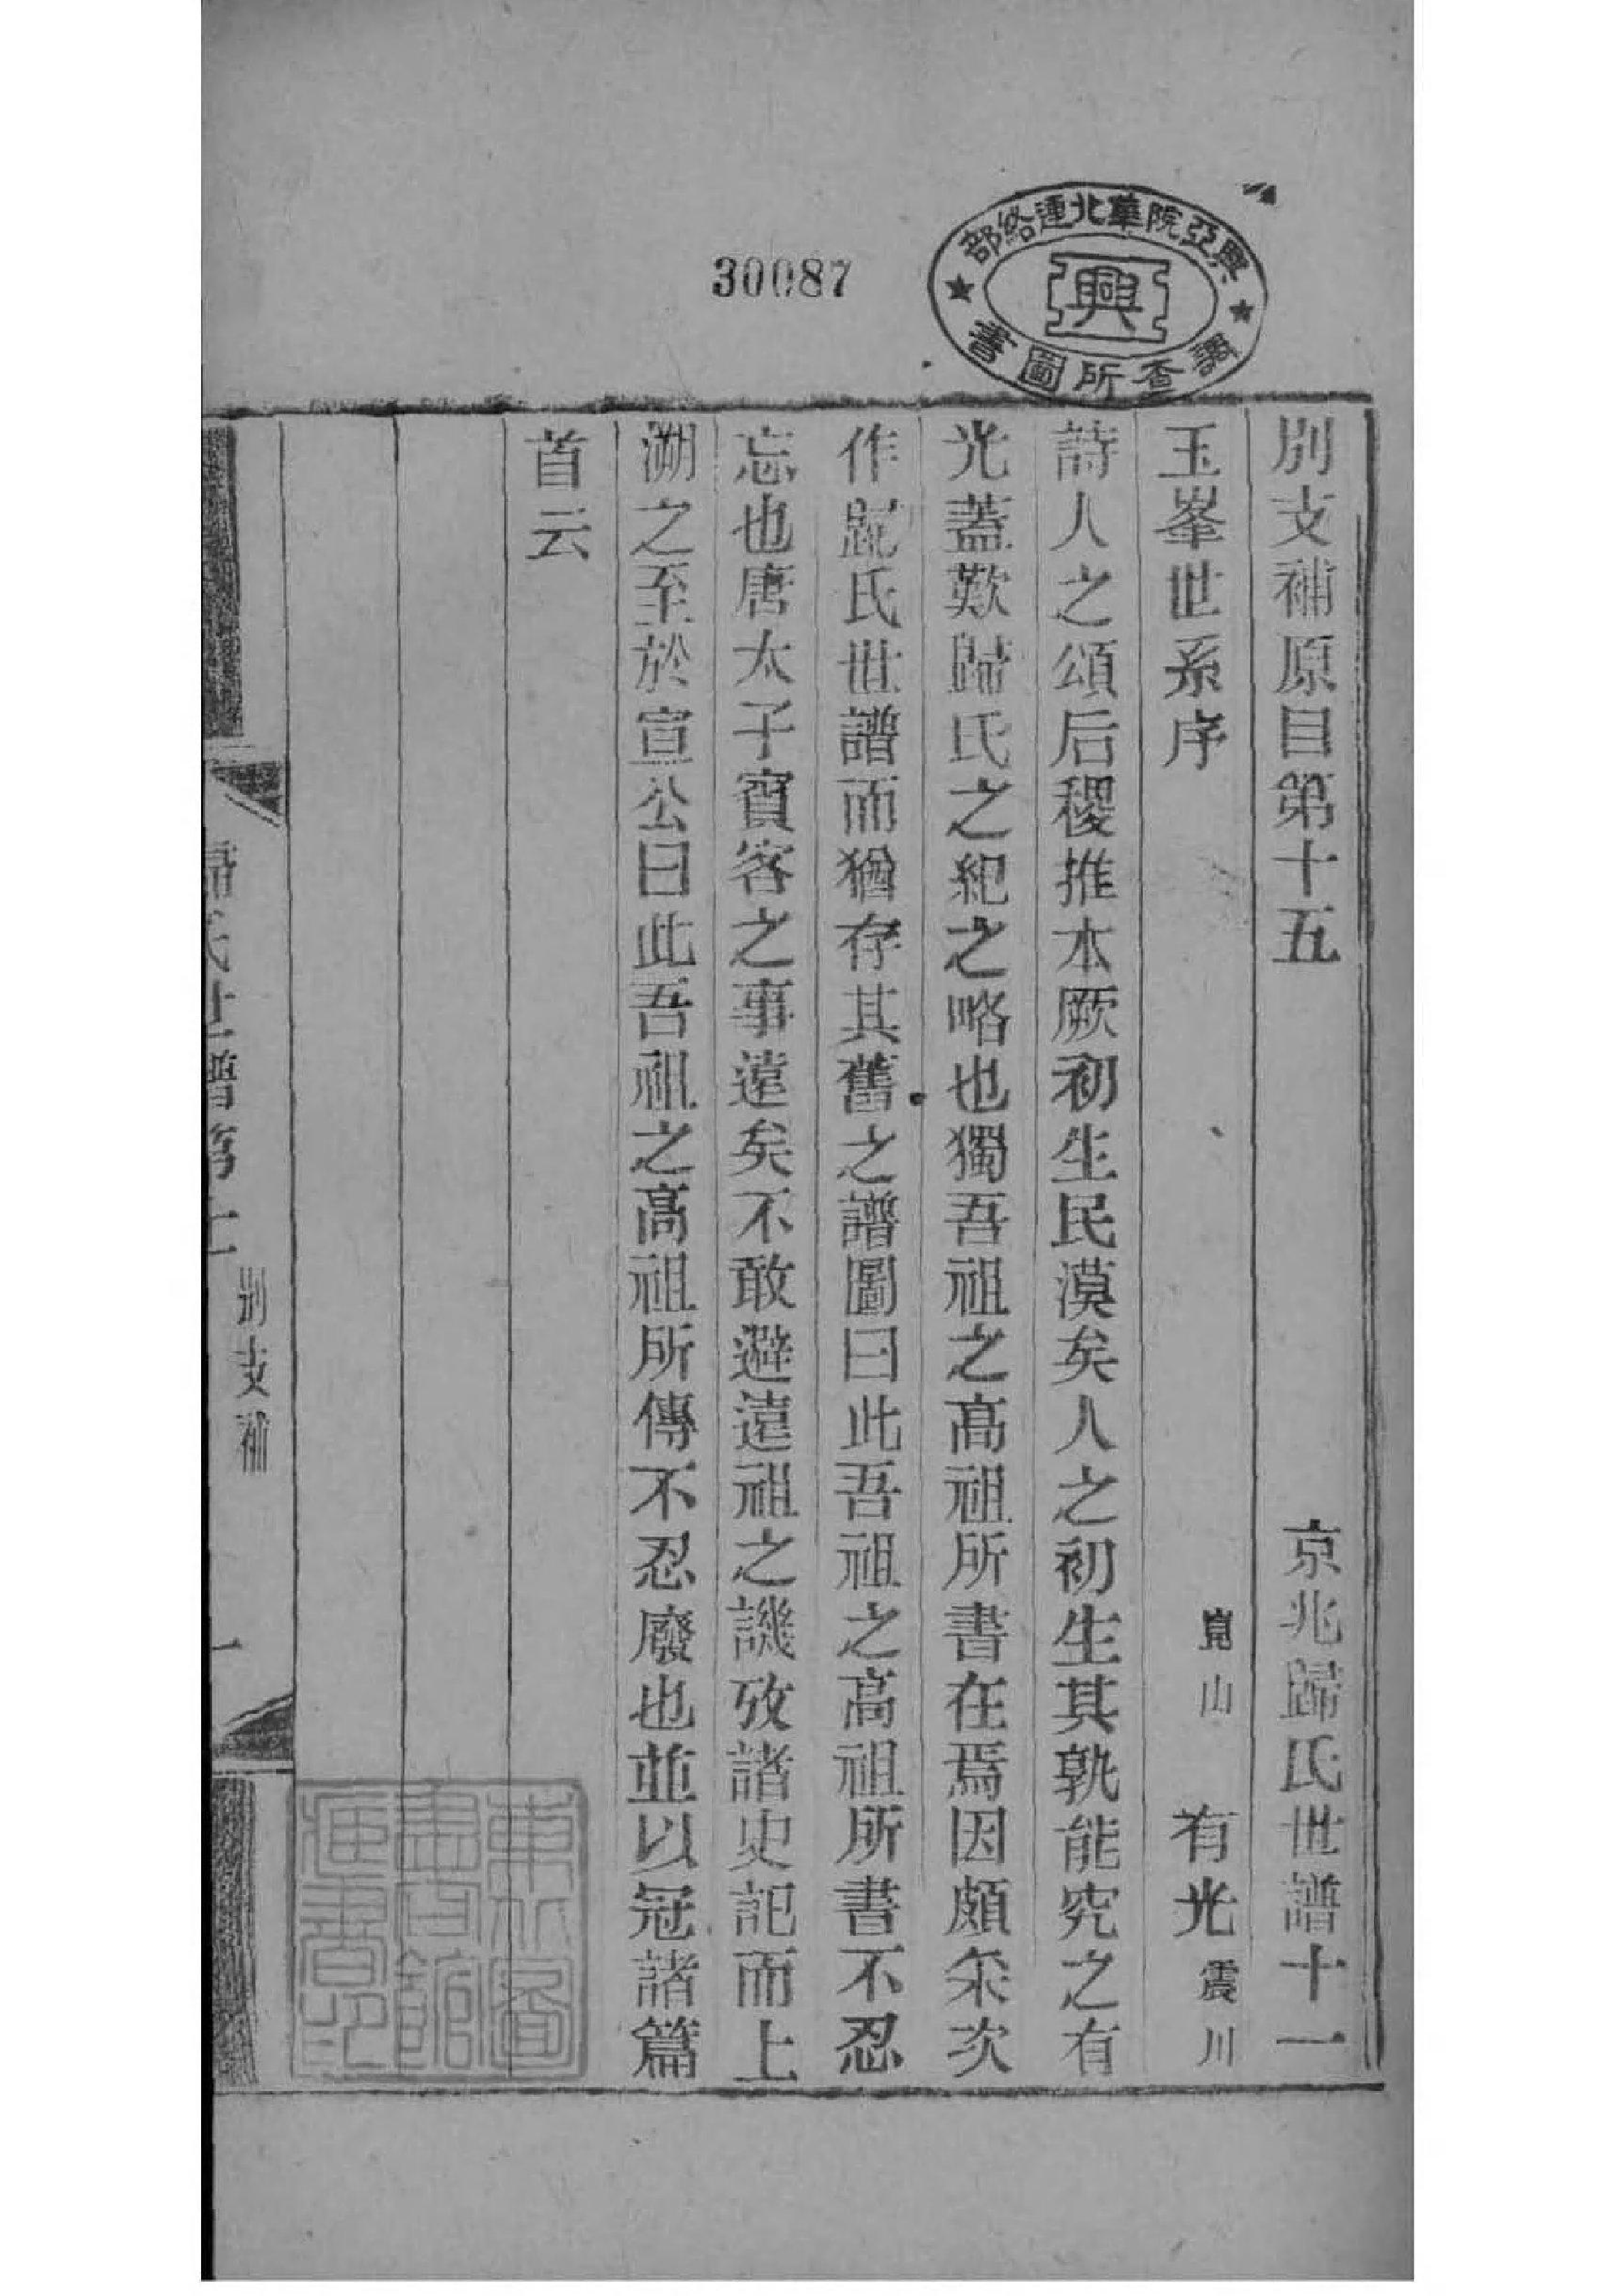 30087
興亞院華北連絡部
調查所圖書
興
別支補原目第十五
京兆歸氏世譜十一
玉峯世系序
崑山 有光 震川
詩人之頌后稷推本厥初生民漠矣人之初生其孰能究之有
光蓋歎歸氏之紀之略也獨吾祖之高祖所書在焉因頗采次
作歸氏世譜而猶存其舊之譜圖曰此吾祖之高祖所書不忍
忘也唐太子賓客之事遠矣不敢避遠祖之譏攷諸史記而上
溯之至於宣公曰此吾祖之高祖所傳不忍廢也並以冠諸篇
首云
歸氏世譜第十
別支補
一
東方圖
書館
藏書印